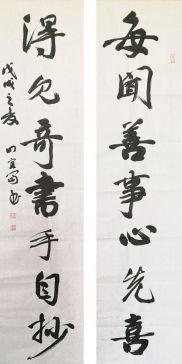 每闻善事心先喜
得见奇书手自抄
戊戌之夏